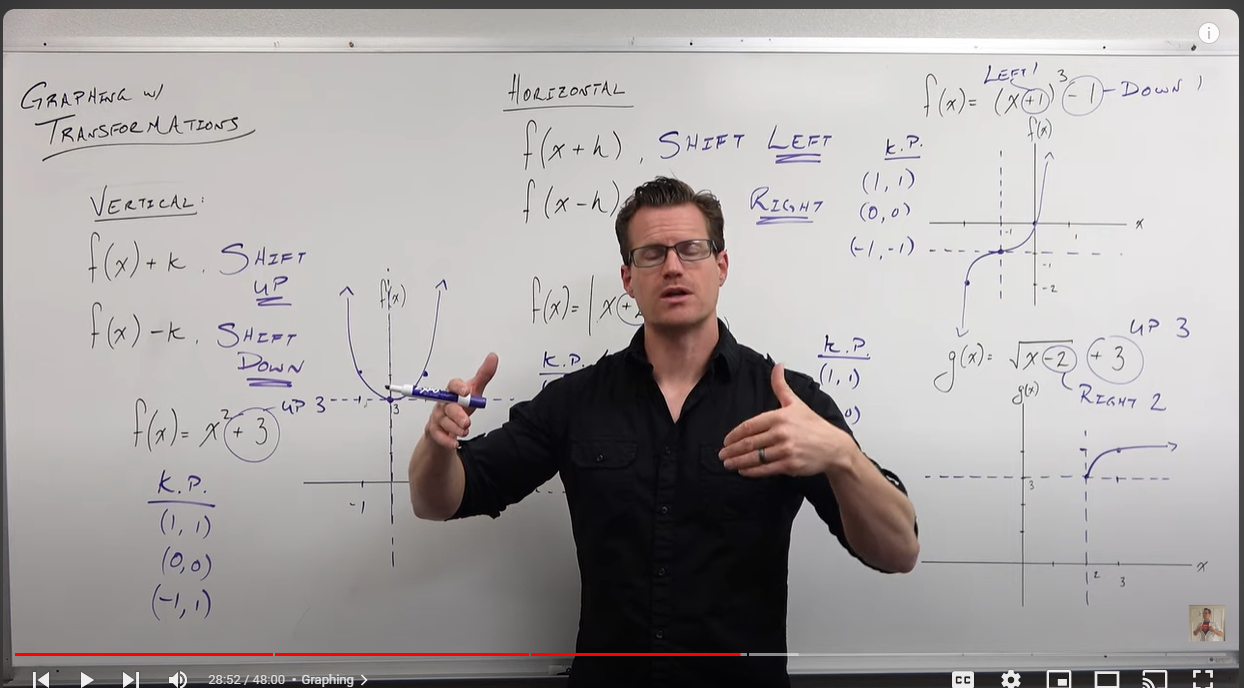 GRAPHING W/
TRANSFORMATIONS
VERTICAL:
f(x)+k, SHIFT
UP
f(x)-k, SHIFT
DOWN
f(x)= x² + 3 UP 3
K.P.
(1, 1)
(0,0)
(-1, 1)
f(x)
-1
3
-1
HORIZONTAL
f(x+h), SHIFT LEFT
f(x-h) RIGHT
f(x)= |x+
K.P.
K.P.
(1, 1)
0)
LEFT 1
f(x)= (x+1)³ -1 DOWN 1
K.P.
(1, 1)
(0,0)
(-1,-1)
f(x)
x
-1
1
-1
-2
UP 3
g(x)= √x-2 + 3
RIGHT 2
g(x)
3
2
3
x
28:52 / 48:00 • Graphing >
CC